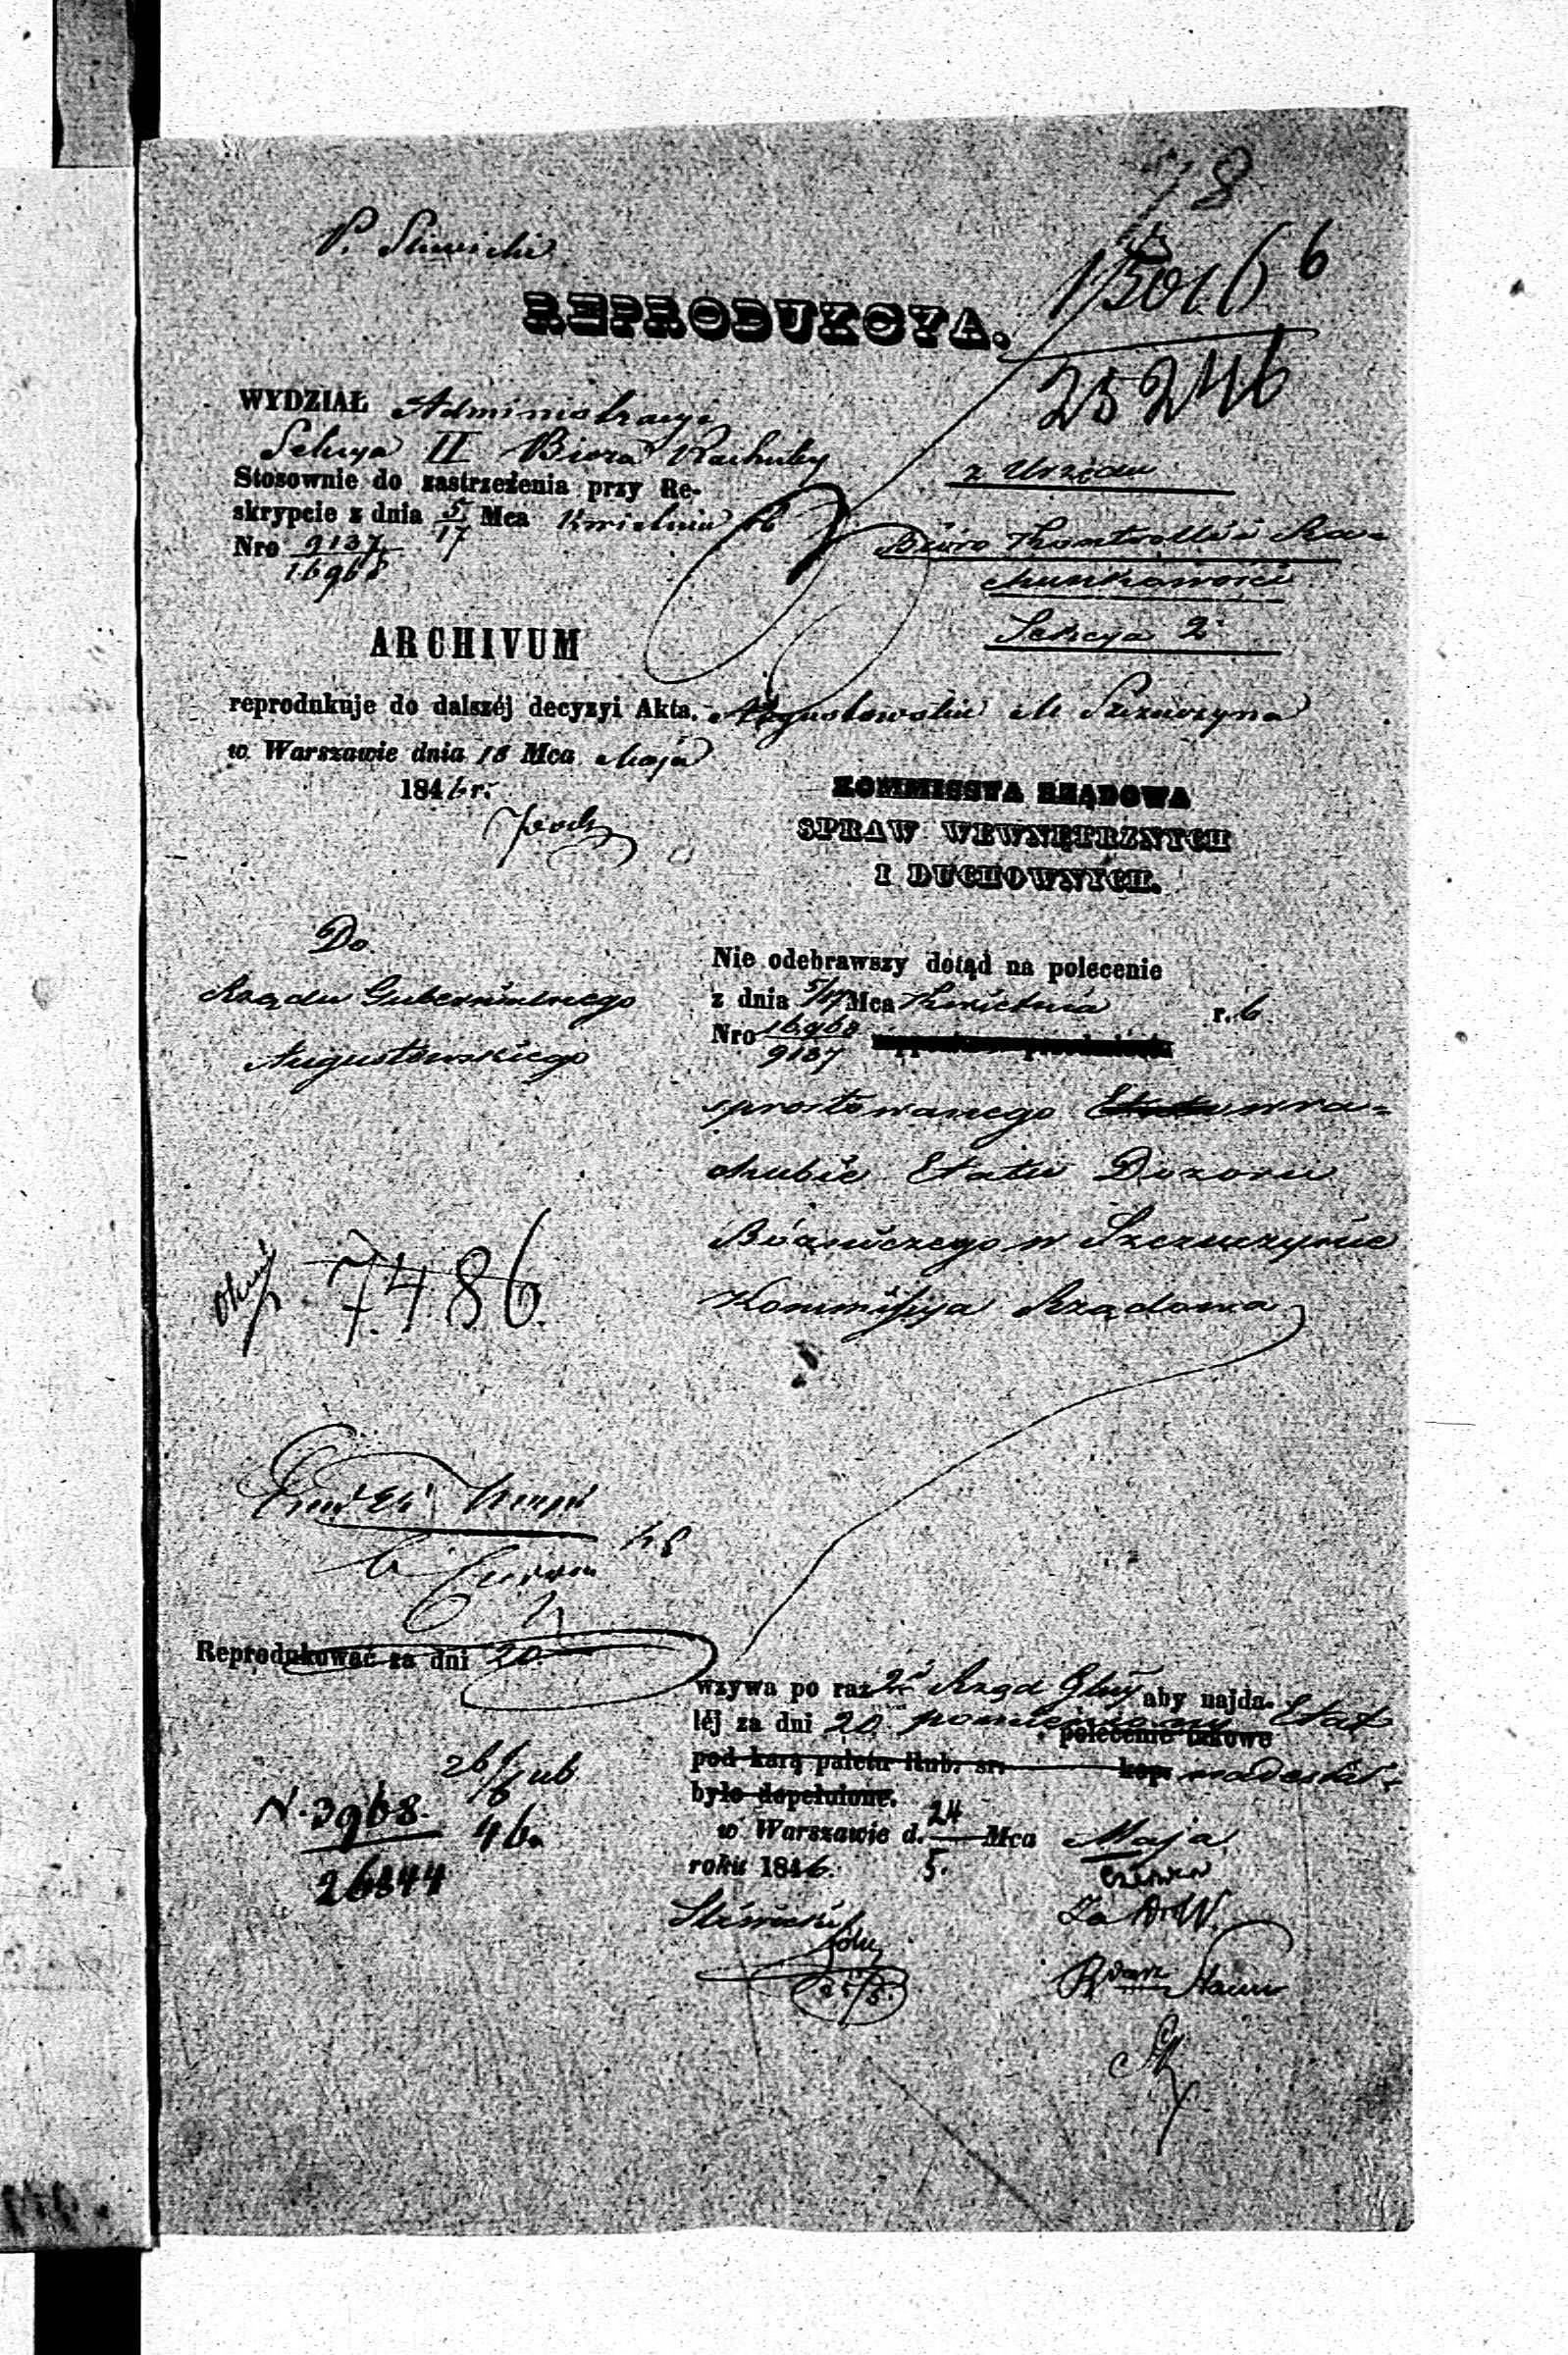 78
P. Sliwicki
REPRODUKCYA.
25246
WYDZIAŁ Administracyi
Sekcya II Biora Rachuby
Stosownie do zastrzeżenia przy Re-
skrypcie z dnia 5/17 Mca Kwietnia
Nro 9137/16968
z Urzędu
Biuro Kontrolli i Ra=
chunkowości
Sekcya 2
ARCHIVUM
reprodukuje do dalszéj decyzyi Akta. Augustowskie M Szczuczyna
w Warszawie dnia 18 Mca Maja
1846 r.
KOMMISSYA RZĄDOWA
SPRAW WEWNĘTRZNYCH
I DUCHOWNYCH.
Do
Rządu Gubernialnego
Augustowskiego
Nie odebrawszy dotąd na polecenie
z dnia 5/17 Mca Kwietnia r. 6
Nro 16968/9137
sprostowanego wra=
chubie Etatu Dozoru
Bóżniczego w Szczuczynie
Kommissya Rządowa
7486
Reprodukować za dni 20
wzywa po raz 2 Rząd Gbny aby najda-
léj za dni 20 pomieniony Etat
polecenie takowe
pod karą paletu Rub. sr. kop. nadesłał
było dopełnione.
w Warszawie d. 24 Mca Maja
roku 1846. 5. Czerwca
N. 3968
26844
46.
Sliwicki
25/5.
Za D. W.